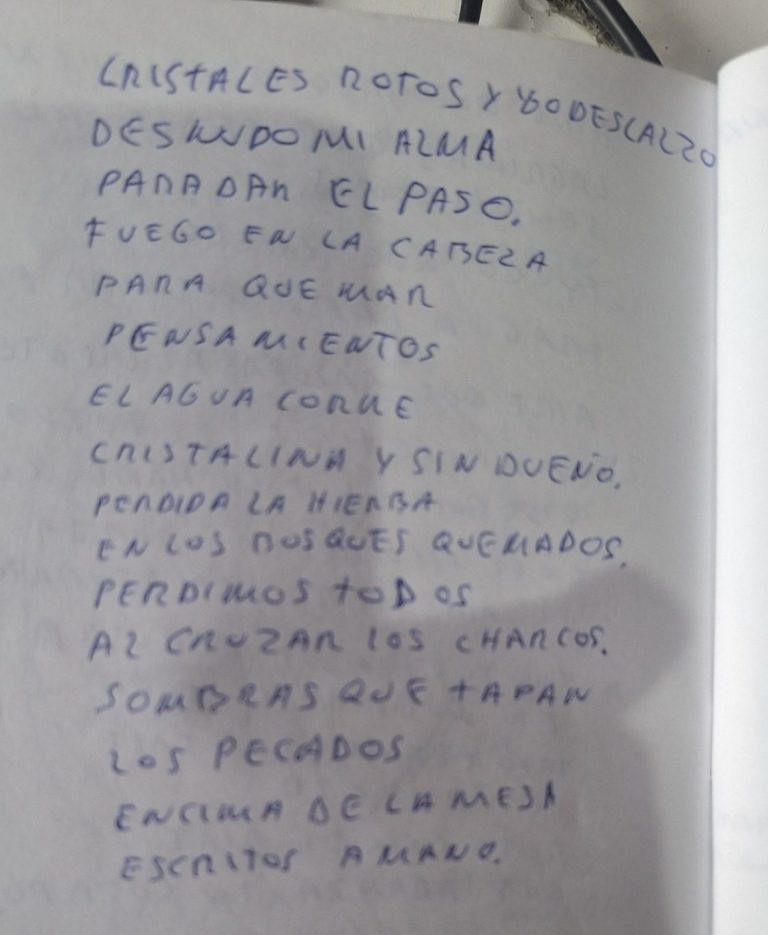 CRISTALES ROTOS Y YO DESCALZO
DESNUDO MI ALMA
PARA DAR EL PASO.
FUEGO EN LA CABEZA
PARA QUEMAR
PENSAMIENTOS
EL AGUA CORRE
CRISTALINA Y SIN DUEÑO.
PERDIDA LA HIERBA
EN LOS BOSQUES QUEMADOS.
PERDIMOS TODOS
AL CRUZAR LOS CHARCOS.
SOMBRAS QUE TAPAN
LOS PECADOS
ENCIMA DE LA MESA
ESCRITOS A MANO.